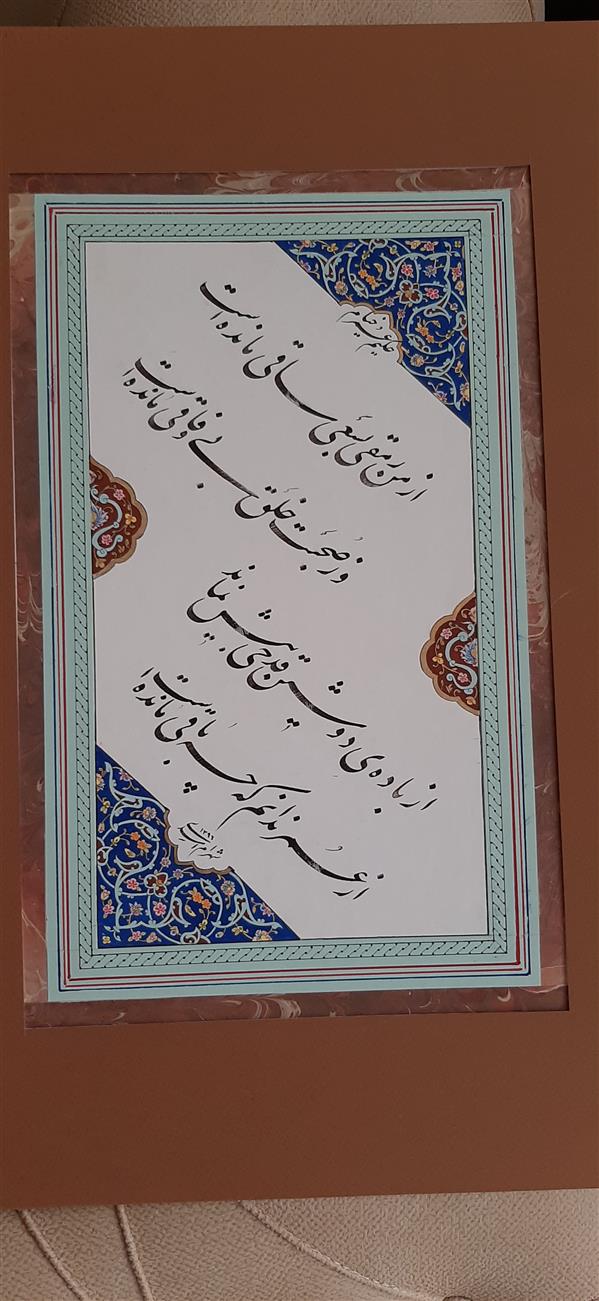 حکیم عمر خیام
از من رمقی بسعی ساقی مانده است
وز صحبت خلق بی وفاقی مانده است
از باده ی دوشین قدحی بیش نماند
از عمر ندانم که چه باقی مانده است